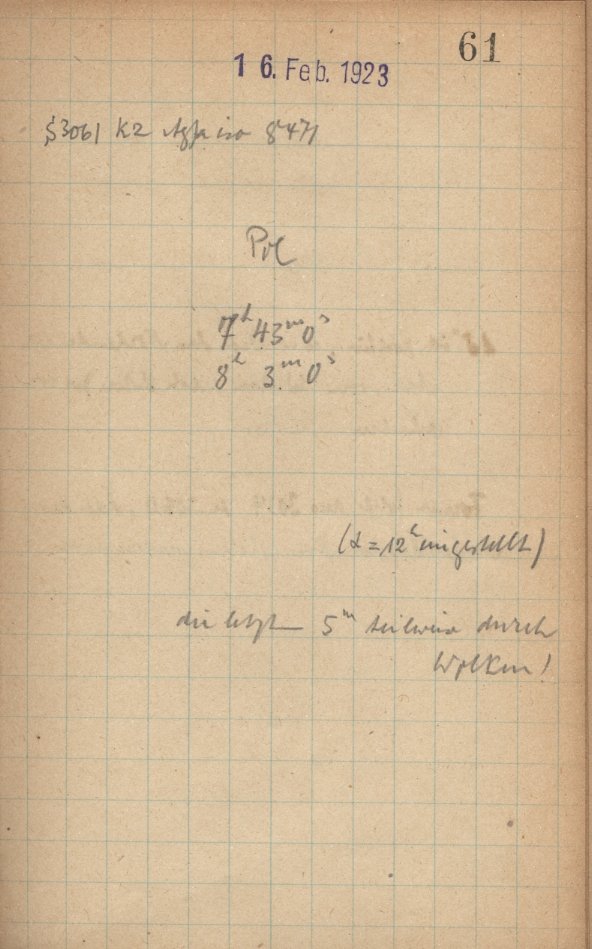 61
16. Feb. 1923
S3061 K2 Agfa iso 8471
Pol
7h 43m 0s
8h 3m 0s
(α = 12h eingestellt)
die letzten 5m teilweise durch
Wolken!